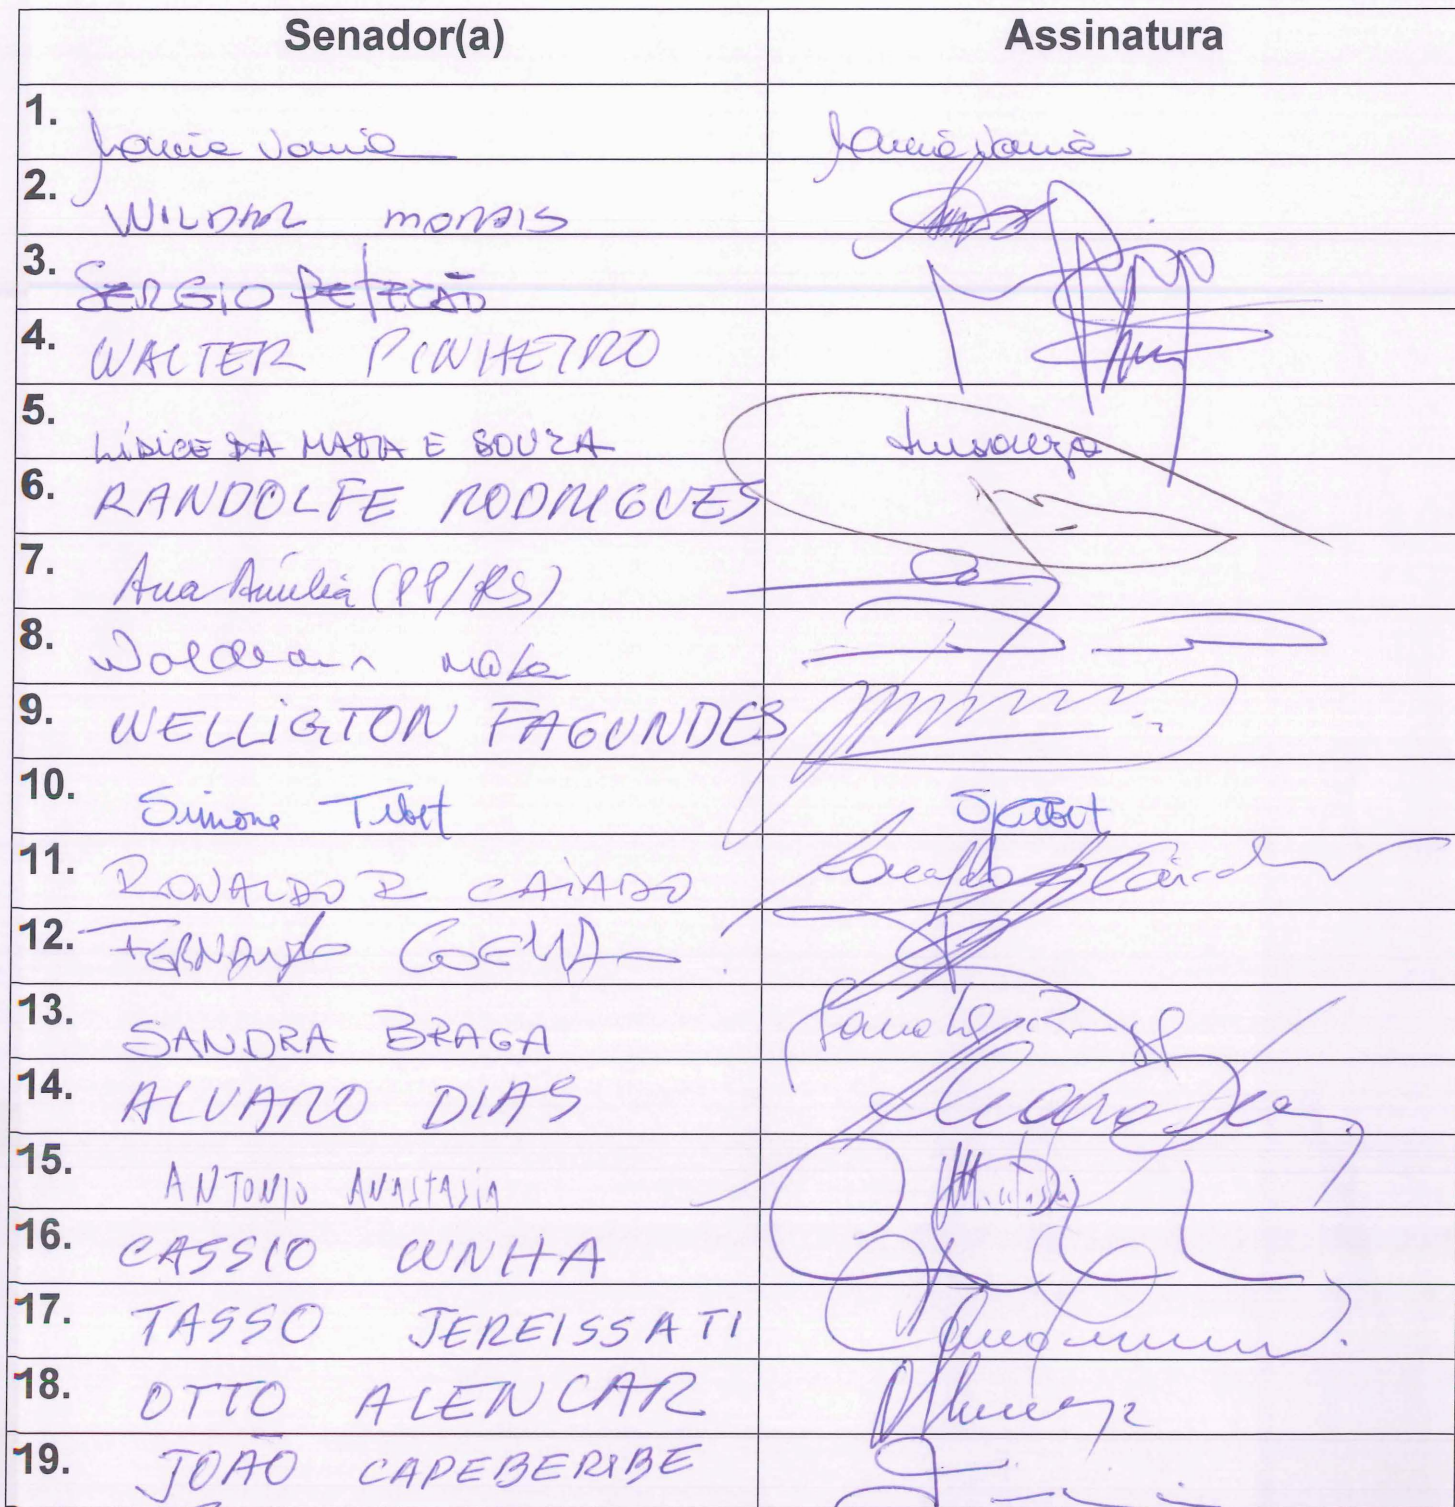 Senador(a) Assinatura
1. Lucia Vania Lucia Vania
2. WILDER MORAIS
3. SERGIO PETECÃO
4. WALTER PINHEIRO
5. LÍDICE DA MATA E SOUZA
6. RANDOLFE RODRIGUES
7. Ana Amélia (PP/RS)
8. Waldemir Moka
9. WELLIGTON FAGUNDES
10. Simone Tebet STebet
11. RONALDO R CAIADO Ronaldo R Caiado
12. FERNANDO COELHO
13. SANDRA BRAGA Sandra Braga
14. ALVARO DIAS Alvaro Dias
15. ANTONIO ANASTASIA
16. CASSIO CUNHA
17. TASSO JEREISSATI
18. OTTO ALENCAR
19. JOÃO CAPEBERIBE